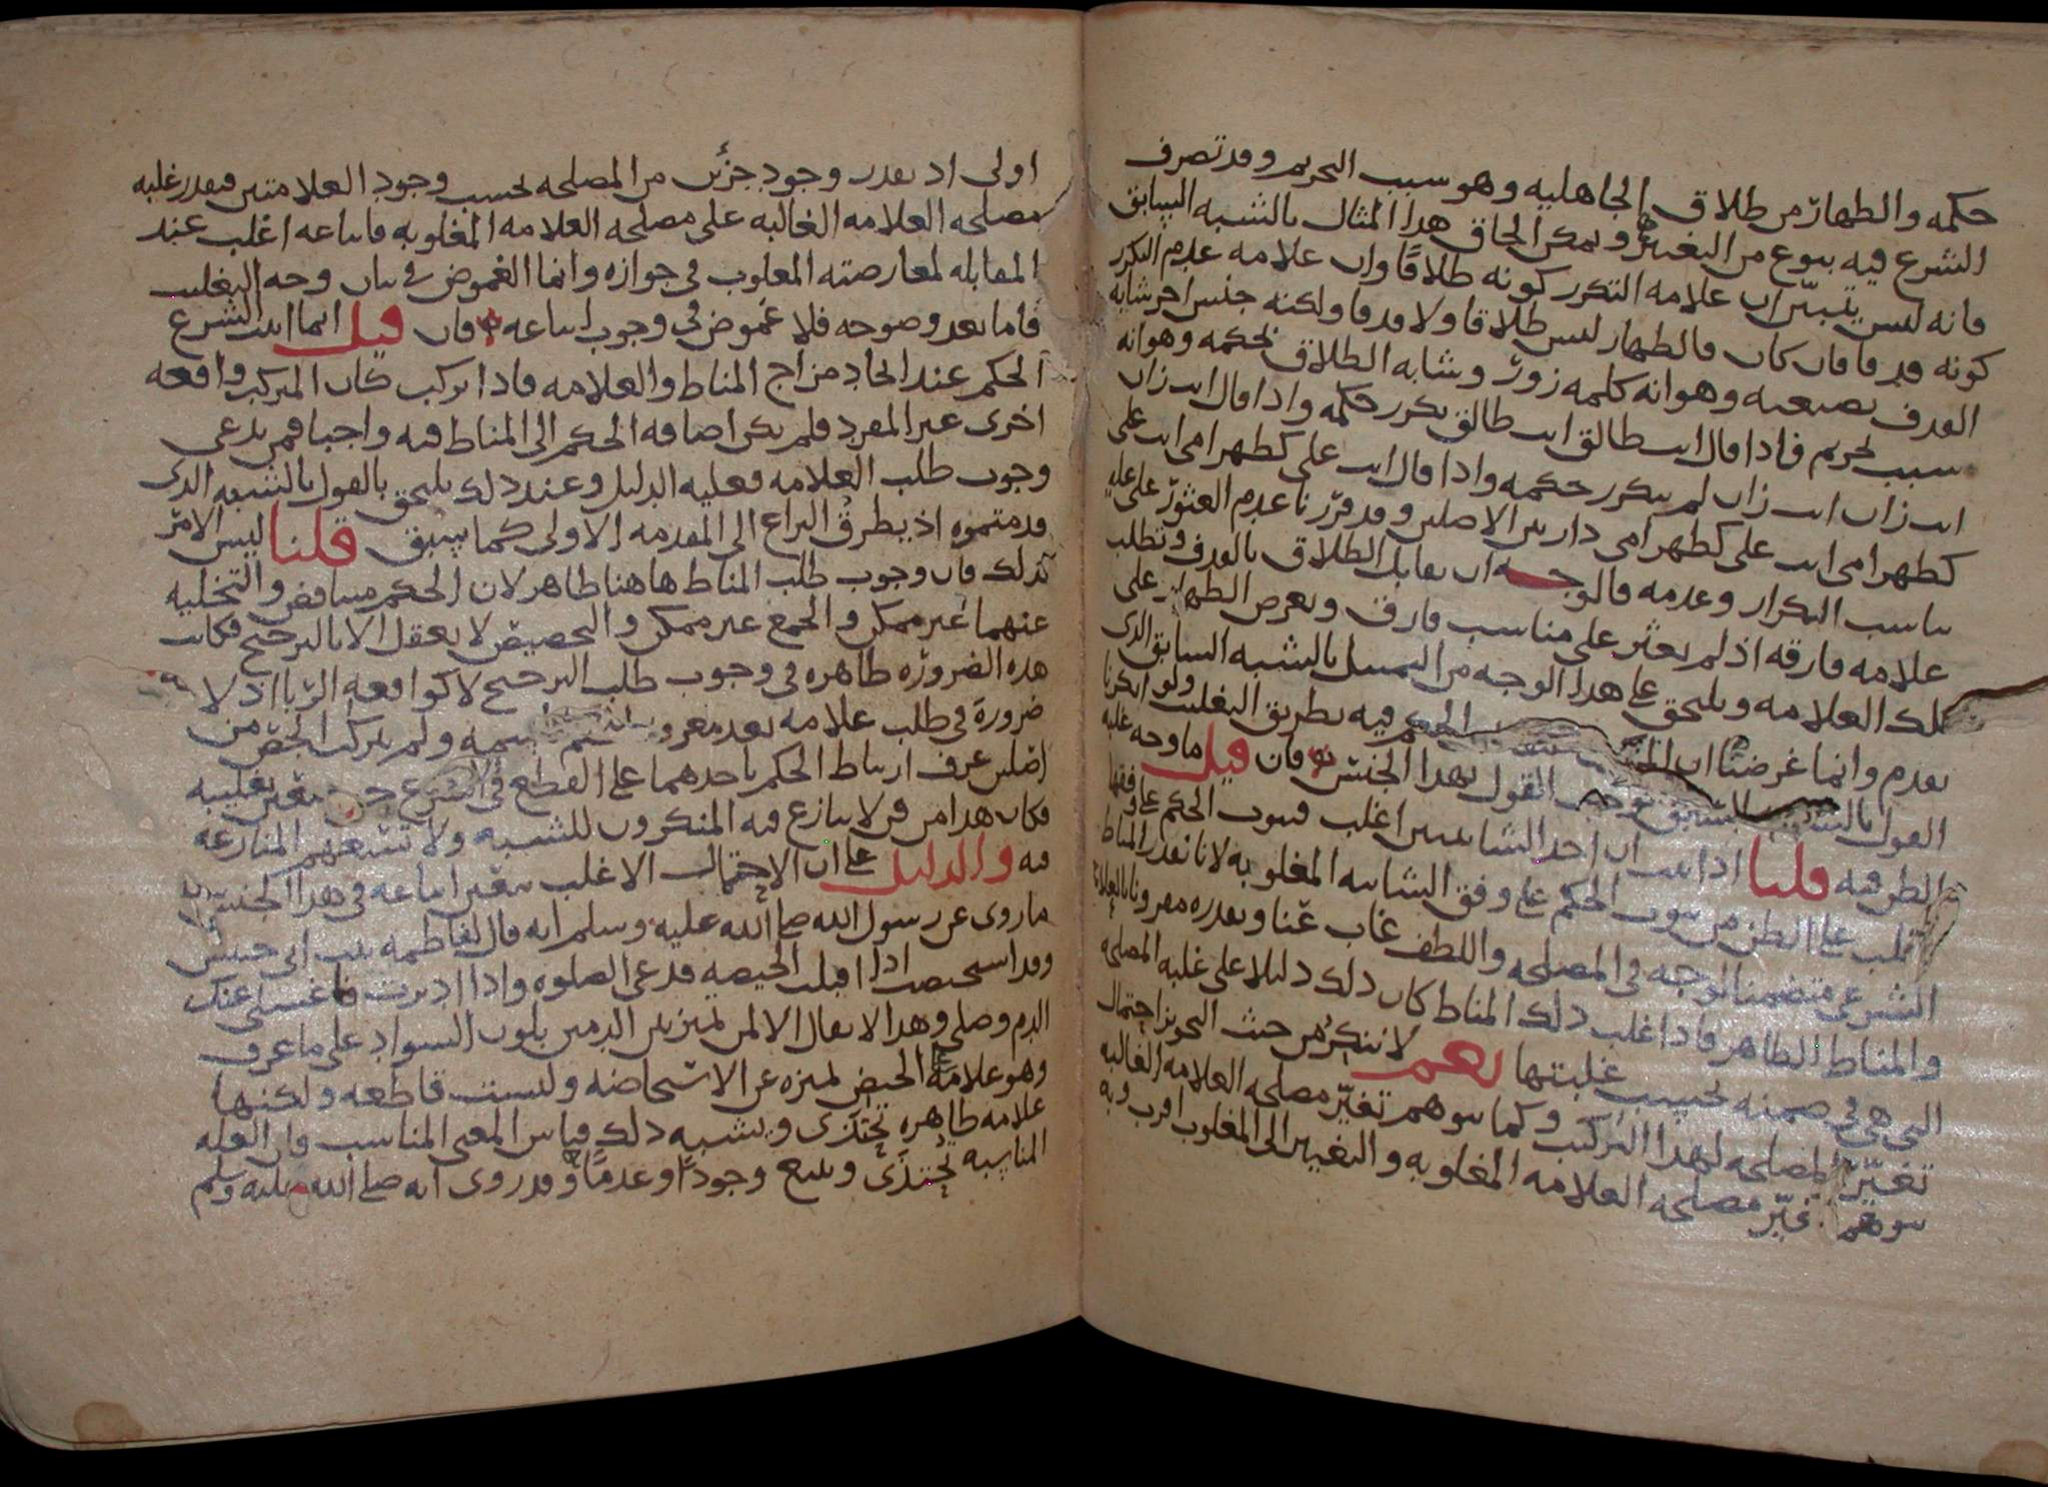 حكمه والظهار من طلاق الجاهليه وهو سبب التحريم وقد تصرف
الشرع فيه بنوع من التغيير ويمكن الحاق هذا المثال بالشبه السابق
فانه ليس يتبين ان علامه التكرر كونه طلاقا وان علامه عدم التكرر
كونه قذفا فان كان فالظهار ليس طلاقا ولا قذفا ولكنه جنس اخر شابه
القذف بصيغته وهو انه كلمه زور وشابه الطلاق بحكمه وهو انه
سبب تحريم فاذا قال انت طالق انت طالق تكرر حكمه واذا قال انت زان
انت زان انت زان لم يتكرر حكمه واذا قال انت على كظهر امى انت على
كظهر امى انت على كظهر امى دار بين الاصلين وقد قررنا عدم العثور على عله
تناسب التكرار وعدمه فالوجه ان نقابل الطلاق بالقذف ونطلب
علامه فارقه اذ لم يعثر على مناسب فارق ونعرض الظهار على
تلك العلامه ويلتحق على هذا الوجه من التمثيل بالشبه السابق الذى
تقدم وانما غرضنا ان الحكم فيه بطريق التغليب ولو انكرنا
القول بالشبه السابق توجب القول بهذا الجنس فان قيل ما وجه غلبه
الظن فيه قلنا اذا ثبت ان احد الشائبتين اغلب فثبوت الحكم على وفقها
اغلب على الظن من ثبوت الحكم على وفق الشائبه المغلوبه لانا نقدر المناط
الشرعى متضمنا لوجه فى المصلحه واللطف غاب عنا ونقدره مقرونا بالعلامه
والمناط الظاهر فاذا غلب ذلك المناط كان ذلك دليلا على غلبه المصلحه
التى هى فى ضمنه بحسب غلبتها نعم لا ننكر من حيث التجويز احتمال
تغير المصلحه لهذا التركيب وكما يتوهم تغير مصلحه العلامه الغالبه
يتوهم تغير مصلحه العلامه المغلوبه والتغيير الى المغلوب اقرب وبه
اولى اذ نقدر وجود جزئين من المصلحه بحسب وجود العلامتين فيقدر غلبه
مصلحه العلامه الغالبه على مصلحه العلامه المغلوبه فاتباعه اغلب عند
المقابله لمعارضته المغلوب فى جوازه وانما الغموض فى بيان وجه التغليب
فاما بعد وضوحه فلا غموض فى وجوب اتباعه فان قيل انما اثبت الشرع
الحكم عند اتحاد مزاج المناط والعلامه فاذا تركب كان المركب واقعه
اخرى غير المفرد فلم يكن اضافه الحكم الى المناط فيه واجبا فمن يدعى
وجوب طلب العلامه فعليه الدليل وعند ذلك يلتحق بالقول بالشبه الذى
قدمتموه اذ يطرق النزاع الى المقدمه الاولى كما سبق قلنا ليس الامر
كذلك فان وجوب طلب المناط هاهنا ظاهر لان الحكم متناقض والتخليه
عنهما غير ممكن والجمع غير ممكن والتخصيص لا يعقل الا بالترجيح فكانت
هذه الضروره ظاهره فى وجوب طلب الترجيح لا كواقعه الربا اذ لا
ضرورة فى طلب علامه بعد معرفه ولم يتركب الجص من
اصلين عرف ارتباط الحكم باحدهما على القطع فى الشرع تغليبه
فكان هذا من فن لا ينازع فيه المنكرون للشبه ولا تسعهم المنازعه
فيه والدليل على ان الاحتمال الاغلب يتعين اتباعه فى هذا الجنس
ما روى عن رسول الله صلى الله عليه وسلم انه قال لفاطمه بنت ابى حبيش
وقد استحيضت اذا اقبلت الحيضه فدعى الصلوه واذا ادبرت فاغسلى عنك
الدم وصلى وهذا لا يقال الا لمن تميز بين الدمين بلون السواد على ما عرف
وهو علامه الحيض تميزه عن الاستحاضه وليست قاطعه ولكنها
علامه ظاهره تحتذى ويشبه ذلك قياس المعنى المناسب فان العله
المناسبه تحتذى ويتبع وجودا وعدما وقد روى انه صلى الله عليه وسلم